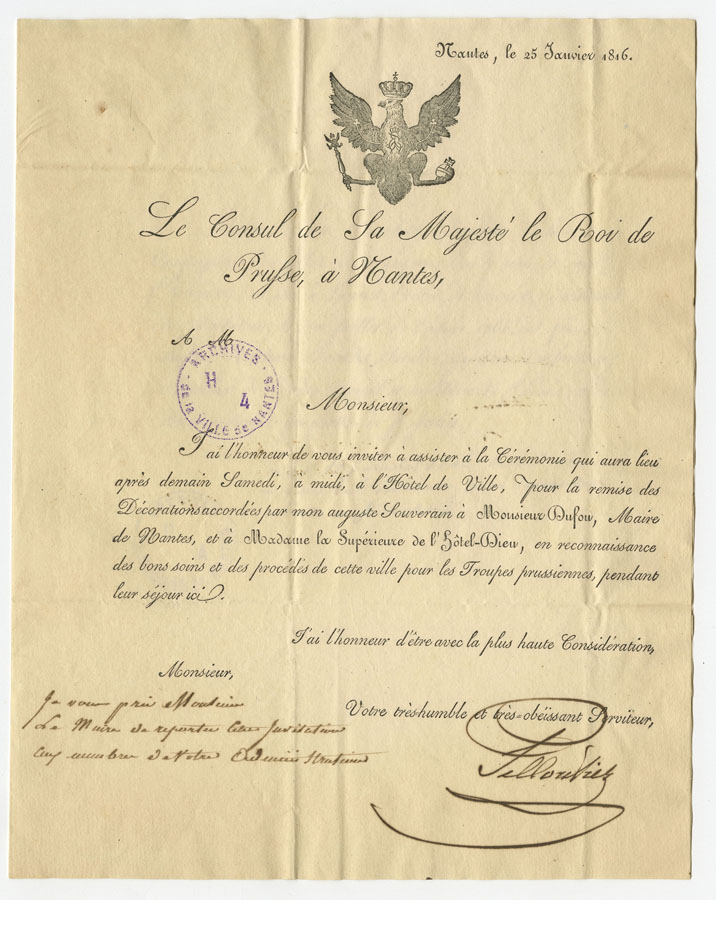 Nantes, le 25 Janvier 1816.
Le Consul de Sa Majesté le Roi de
Prusse, à Nantes,
A M
ARCHIVES
de la VILLE de NANTES
H
4
Monsieur,
J'ai l'honneur de vous inviter à assister à la Cérémonie qui aura lieu
après demain Samedi, à midi, à l'Hôtel de Ville, pour la remise des
Décorations accordées par mon auguste Souverain à Monsieur Dufou, Maire
de Nantes, et à Madame la Supérieure de l'Hôtel-Dieu, en reconnaissance
des bons soins et des procédés de cette ville pour les Troupes prussiennes, pendant
leur séjour ici.
J'ai l'honneur d'être avec la plus haute Considération,
Monsieur,
Votre très-humble et très-obéissant Serviteur,
Je vous prie Monsieur
Le Maire de reporter cette Invitation
aux membre de Votre Administration
Pelloutier